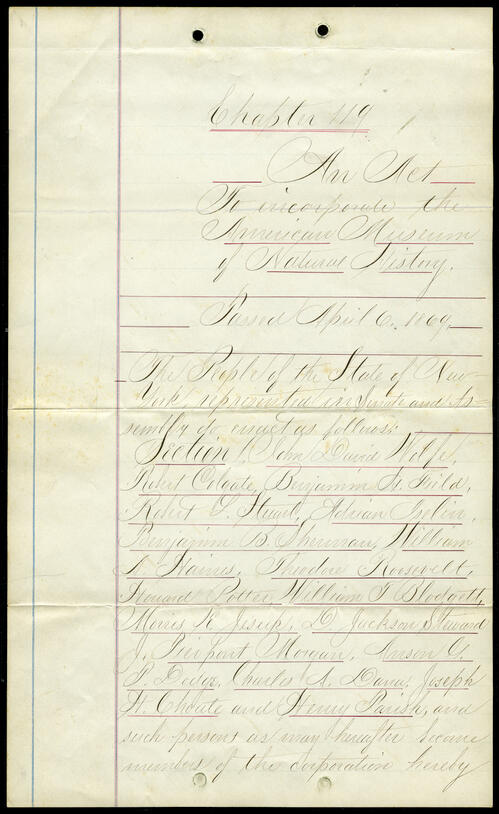 Chapter 119
An Act
To incorporate the
American Museum
of Natural History.
Passed April 6, 1869,
The People of the State of New
York, represented in Senate and As-
sembly do enact as follows:
Section 1. John David Wolfe,
Robert Colgate, Benjamin H. Field,
Robert L. Stuart, Adrian Iselin,
Benjamin B. Sherman, William
A. Haines, Theodore Roosevelt,
Howard Potter, William T. Blodgett,
Morris K. Jesup, D. Jackson Steward
J. Pierpont Morgan, Anson G.
P. Dodge, Charles A. Dana, Joseph
H. Choate and Henry Parish, and
such persons as may hereafter become
members of the corporation hereby